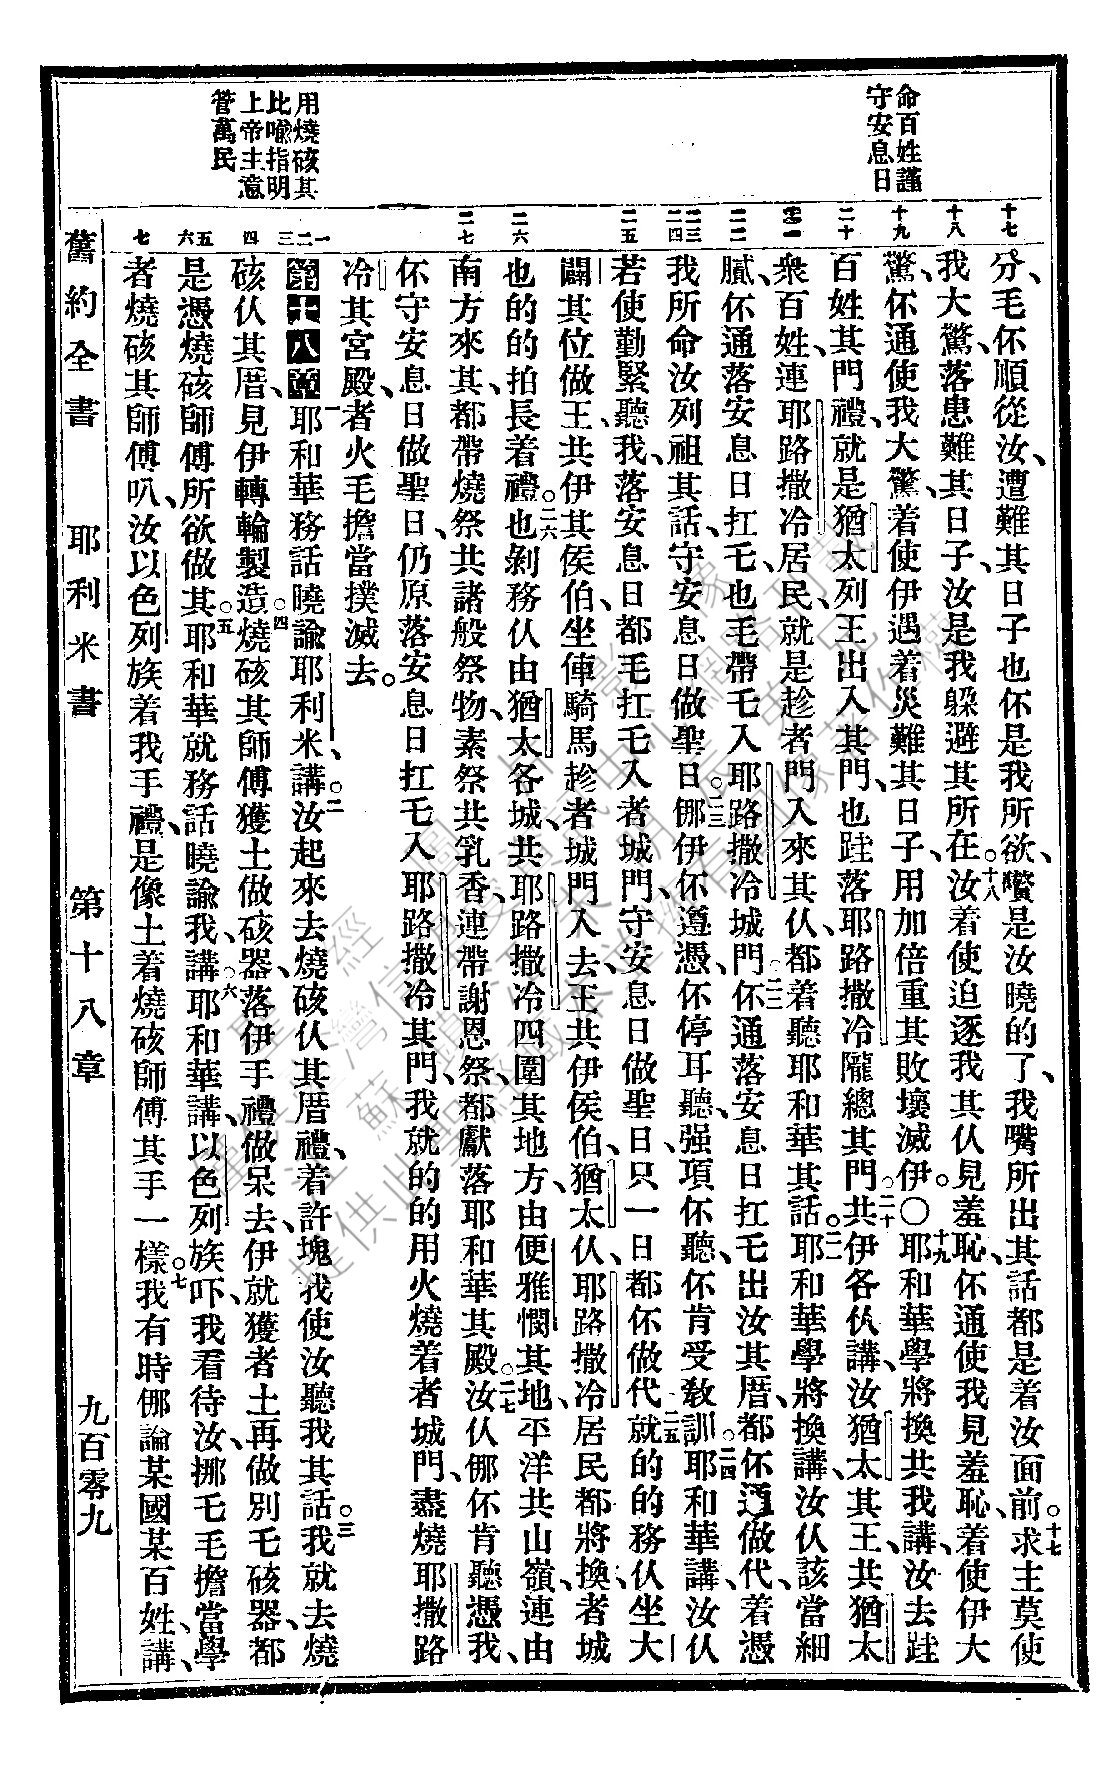 命百姓謹
守安息日
用燒硋其
比喻指明
上帝主意
管萬民
十七
十八
十九
二十
二一
二二
二三
二四
二五
二六
二七
一
二
三
四
五
六
七
分、毛伓順從汝、遭難其日子也伓是我所欲、嚽是汝曉的了、我嘴所出其話都是着汝面前。十七求主莫使
我大驚、落患難其日子、汝是我躲避其所在。十八汝着使迫逐我其仫見羞恥、伓通使我見羞恥、着使伊大
驚、伓通使我大驚、着使伊遇着災難其日子、用加倍重其敗壞滅伊。〇十九耶和華學將換共我講、汝去跬
百姓其門禮、就是猶太列王出入其門、也跬落耶路撒冷隴總其門。二十共伊各仫講、汝猶太其王、共猶太
衆百姓、連耶路撒冷居民、就是趁者門入來其仫、都着聽耶和華其話。二一耶和華學將換講、汝仫該當細
膩、伓通落安息日扛乇、也毛帶乇入耶路撒冷城門。二二伓通落安息日扛乇出汝其厝、都伓通做代、着憑
我所命汝列祖其話、守安息日做聖日。二三㑚伊伓遵憑、伓停耳聽、强項伓聽、伓肯受教訓。二四耶和華講、汝仫
若使勤緊聽我、落安息日都毛扛乇入者城門、守安息日做聖日、只一日都伓做代。二五就的的務仫坐大
闢其位做王、共伊其侯伯、坐俥騎馬、趁者城門入去、王共伊侯伯、猶太仫、耶路撒冷居民、都將換、者城
也的的拍長着禮。二六也剝務仫由猶太各城、共耶路撒冷四圍其地方、由便雅憫其地、平洋共山嶺、連由
南方來其、都帶燒祭共諸般祭物、素祭共乳香、連帶謝恩祭、都獻落耶和華其殿。二七汝仫㑚伓肯聽憑我、
伓守安息日做聖日、仍原落安息日扛乇入耶路撒冷其門、我就的的用火燒着者城門、盡燒耶撒路
冷其宮殿、者火毛擔當撲滅去。
第十八章 一耶和華務話曉諭耶利米、講。二汝起來去燒硋仫其厝禮、着許塊我使汝聽我其話。三我就去燒
硋仫其厝、見伊轉輪製造。四燒硋其師傅獲土做硋器、落伊手禮做呆去、伊就獲者土再做別乇硋器、都
是憑燒硋師傅所欲做其。五耶和華就務話曉諭我、講。六耶和華講、以色列族吓、我看待汝、挪乇毛擔當學
者燒硋其師傅叭、汝以色列族着我手禮、是像土着燒硋師傅其手一樣。七我有時㑚論某國某百姓、講、
舊約全書 耶利米書 第十八章 九百零九